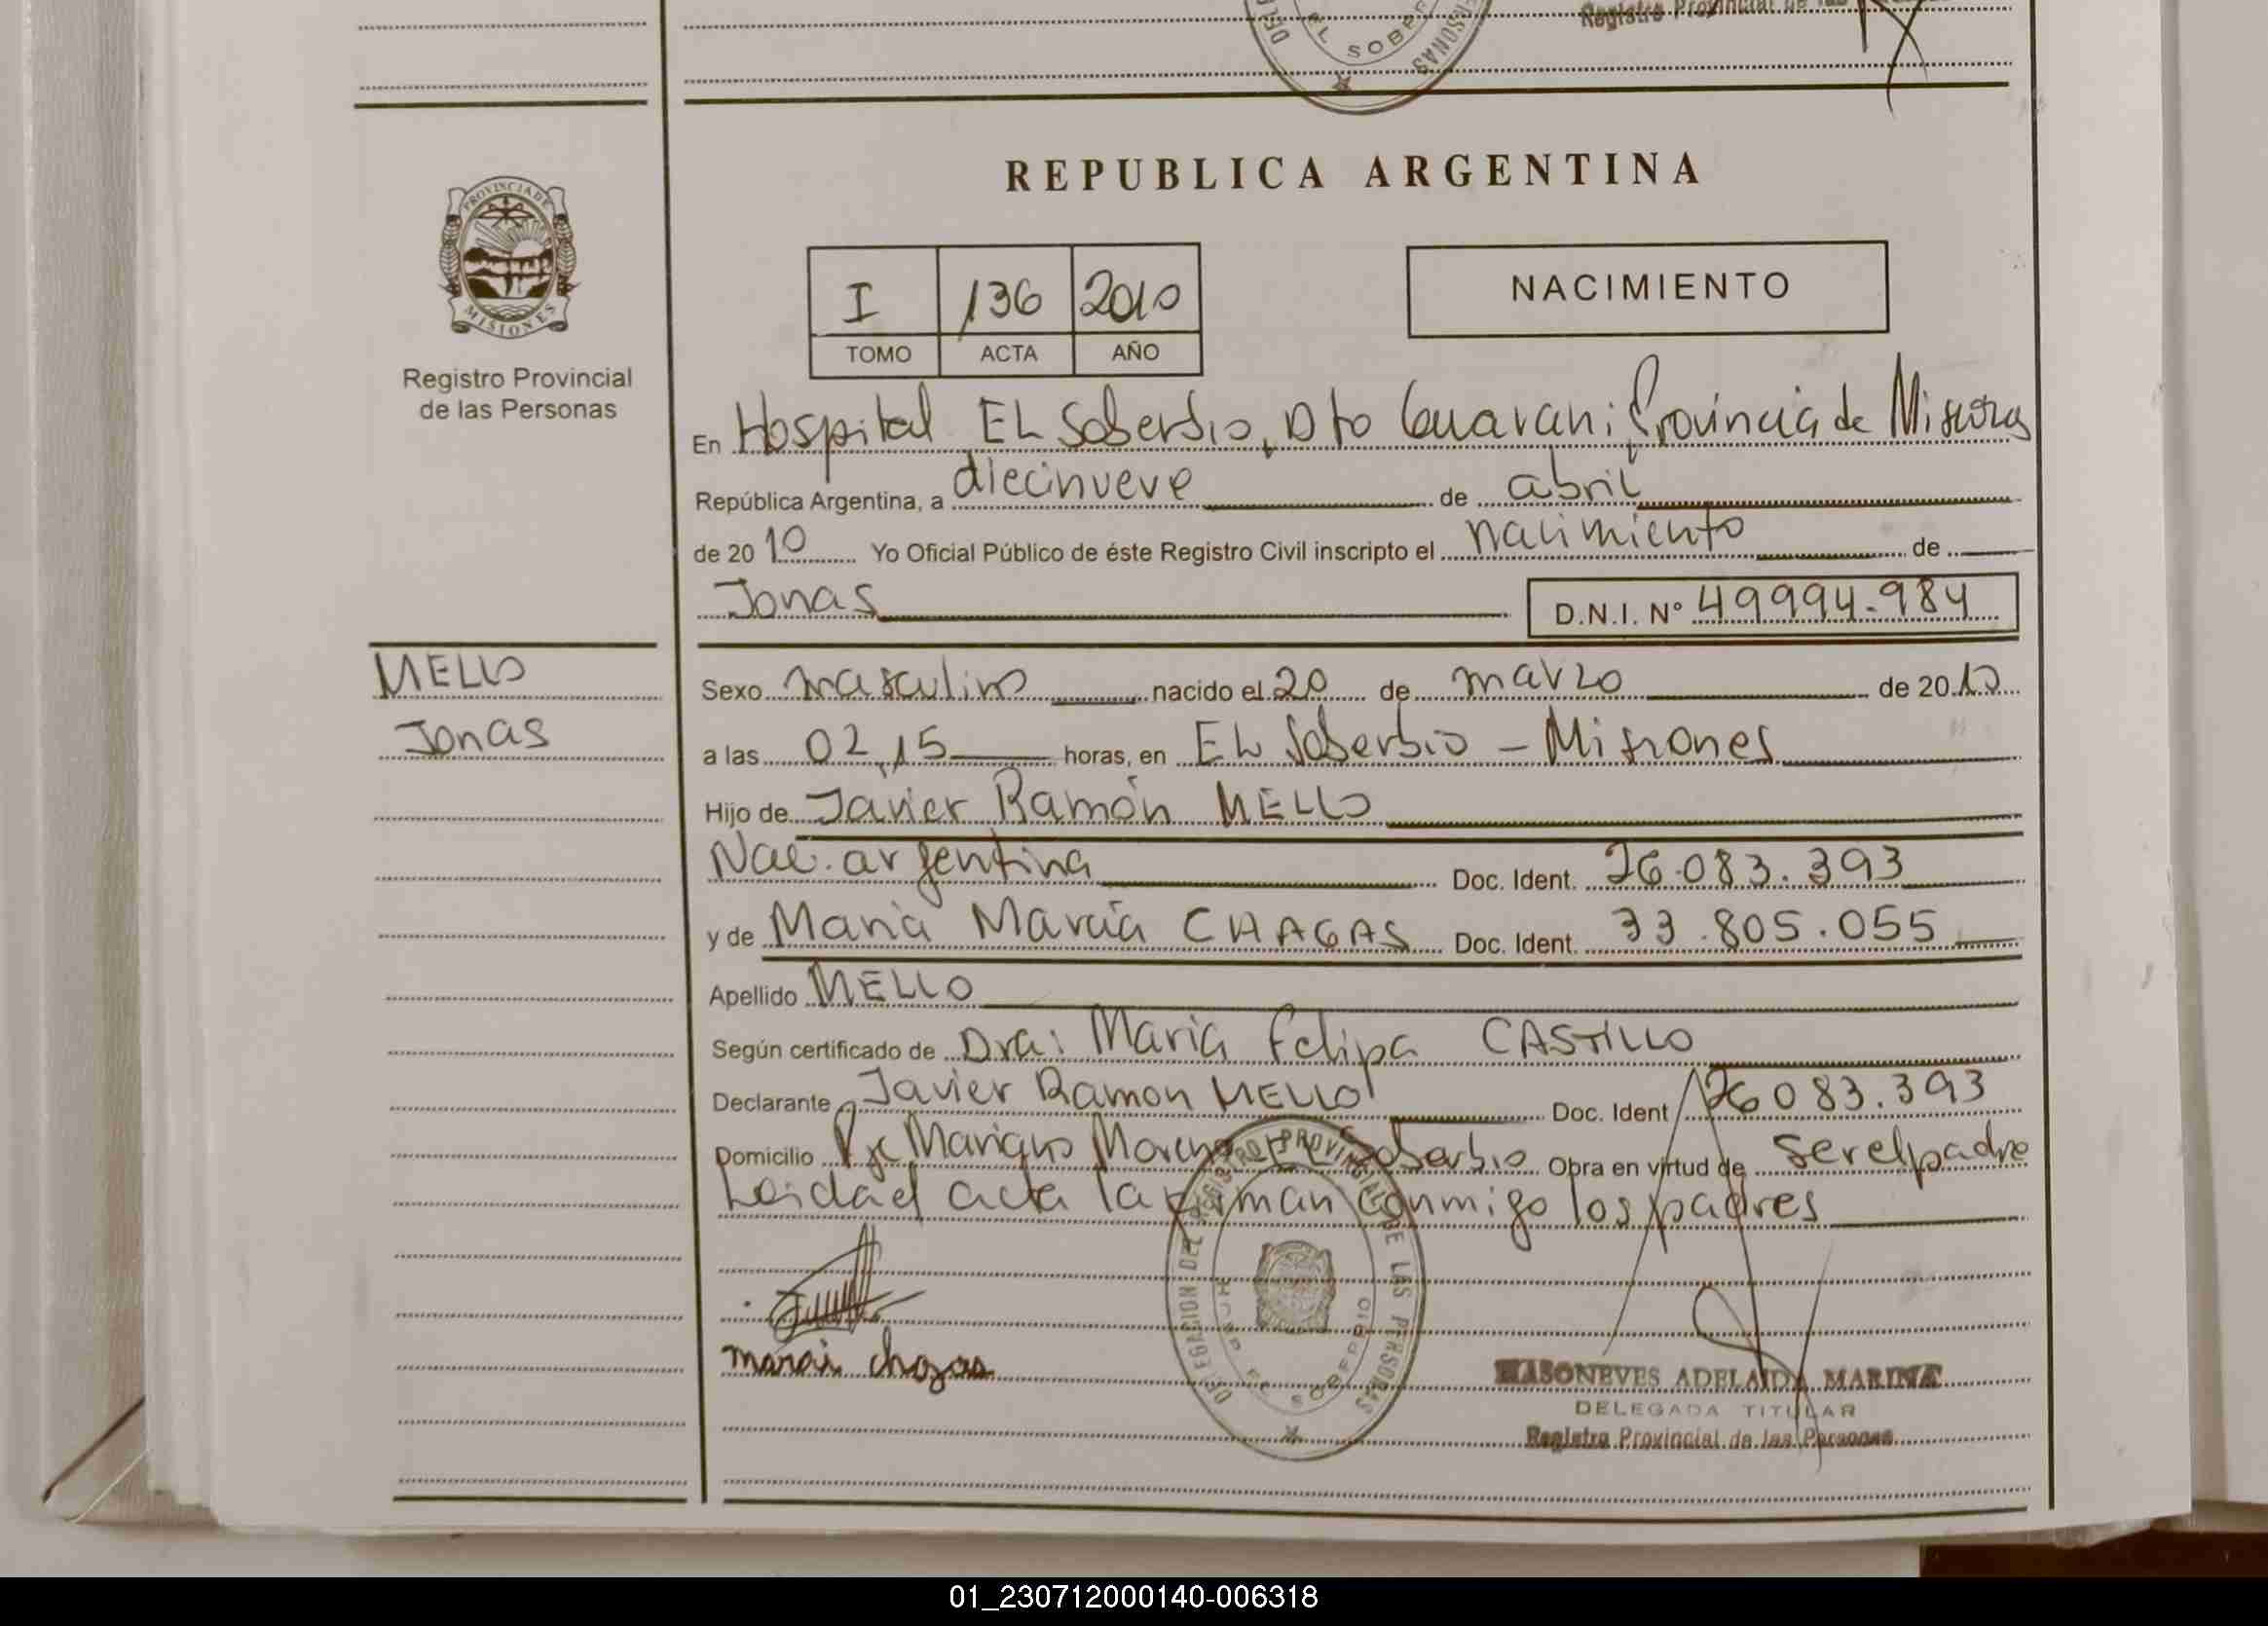 EL SOBER
PERSONAS
Registro Provincial de las
PROVINCIA DE
MISIONES
Registro Provincial
de las Personas
REPUBLICA ARGENTINA
I 136 2010
TOMO ACTA AÑO
NACIMIENTO
En Hospital EL Soberbio, Dto Guarani Provincia de Misiones
República Argentina, a diecinueve de abril
de 2010 Yo Oficial Público de éste Registro Civil inscripto el nacimiento de
Jonas D.N.I. Nº 49994.984
MELLO
Jonas
Sexo masculino nacido el 20 de marzo de 2010
a las 02,15 horas, en EL Soberbio - Misiones
Hijo de Javier Ramón MELLO
Nac. argentina Doc. Ident. 26.083.393
y de Maria Marcia CHAGAS Doc. Ident. 33.805.055
Apellido MELLO
Según certificado de Dra: Maria Felipa CASTILLO
Declarante Javier Ramon MELLO Doc. Ident 26083.393
Domicilio Pje Mariano Moreno EL Soberbio Obra en virtud de ser el padre
Leida el acta la firman conmigo los padres
DELEGACION DEL REGISTRO PROVINCIAL DE LAS PERSONAS
HOSP EL SOBERBIO
marai chagas
MASONEVES ADELAIDA MARINA
DELEGADA TITULAR
Registro Provincial de las Personas
01_230712000140-006318